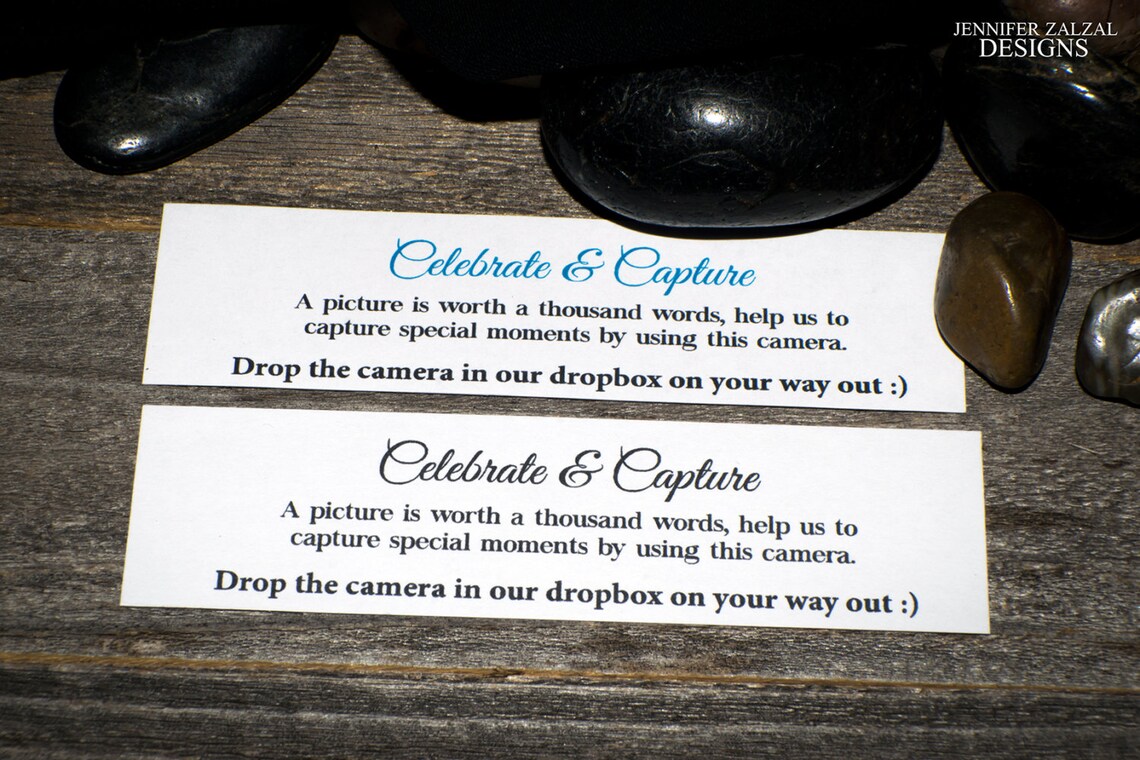 JENNIFER ZALZAL
DESIGNS
Celebrate & Capture
A picture is worth a thousand words, help us to
capture special moments by using this camera.
Drop the camera in our dropbox on your way out :)
Celebrate & Capture
A picture is worth a thousand words, help us to
capture special moments by using this camera.
Drop the camera in our dropbox on your way out :)